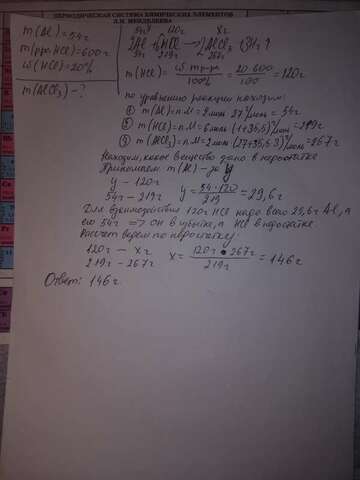 ПЕРИОДИЧЕСКАЯ СИСТЕМА ХИМИЧЕСКИХ ЭЛЕМЕНТОВ
Д.И. МЕНДЕЛЕЕВА
m(Al)=54г
m(р-ра HCl)=600г
ω(HCl)=20%
m(AlCl3)-?
54г 120г xг
2Al+6HCl→2AlCl3+3H2↑
54г 219г 267г
m(HCl)= ω·m р-ра / 100% = 20·600 / 100 =120г
по уравнению реакции находим:
① m(Al)=n·M=2моль·27г/моль=54г
② m(HCl)=n·M=6моль·(1+35,5)г/моль=219г
③ m(AlCl3)=n·M=2моль·(27+35,5·3)г/моль=267г
Находим, какое вещество дано в недостатке
Принимаем m(Al)-за y
y-120г
54г-219г y= 54·120 / 219 =29,6г
Для взаимодействия 120г HCl надо всего 29,6г Al, а
его 54г ⇒ он в избытке, а HCl в недостатке
Расчёт ведём по недостатку:
120г - xг
219г-267г x= 120г·267г / 219г =146г
Ответ: 146г